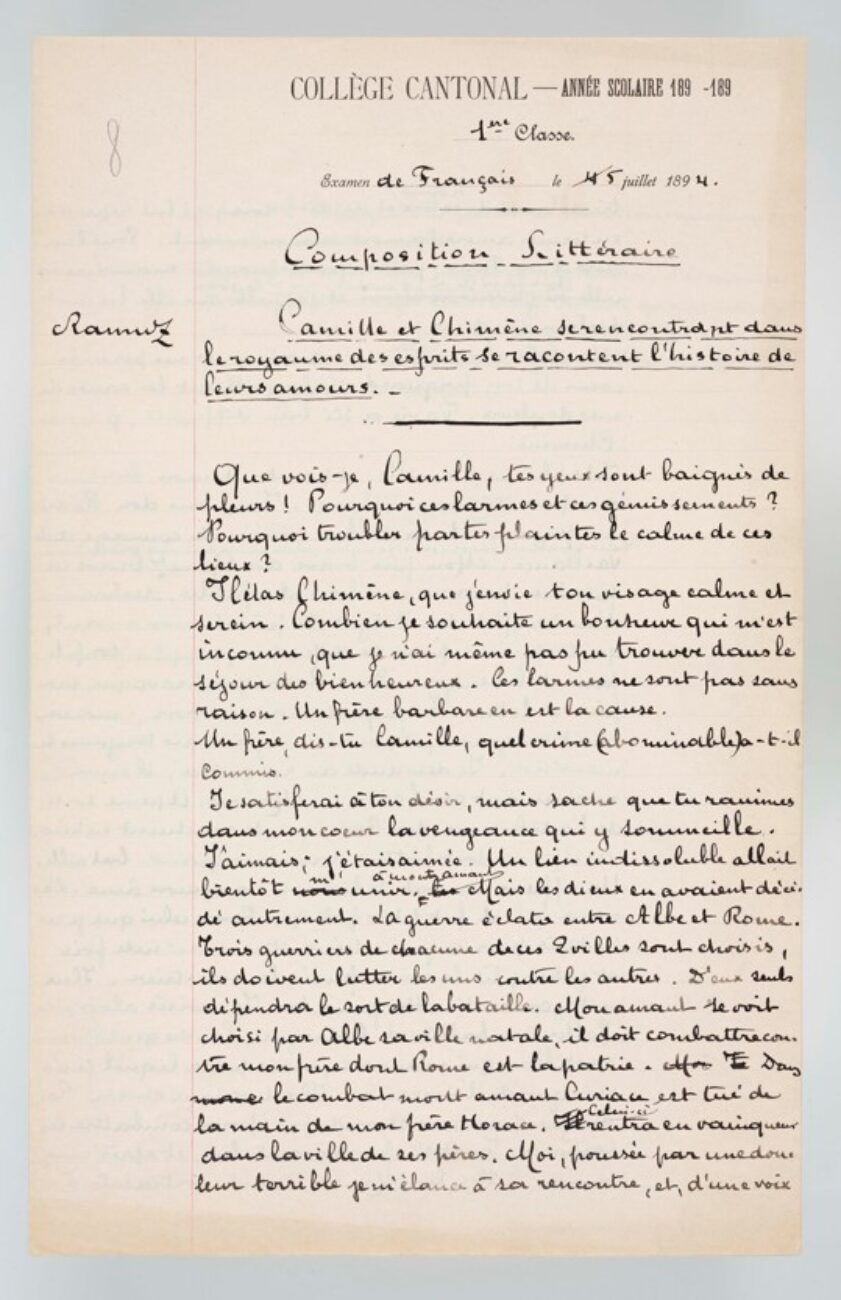 COLLÈGE CANTONAL — ANNÉE SCOLAIRE 189 -189
1ère Classe.
8
Examen de Français le 5 juillet 1894.
Composition Littéraire
Ramuz
Camille et Chimène se rencontrant dans
le royaume des esprits se racontent l'histoire de
leurs amours. _
Que vois-je, Camille, tes yeux sont baignés de
pleurs ! Pourquoi ces larmes et ces gémissements ?
Pourquoi troubler par tes plaintes le calme de ces
lieux ?
Hélas Chimène, que j'envie ton visage calme et
serein. Combien je souhaite un bonheur qui m'est
inconnu, que je n'ai même pas pu trouver dans le
séjour des bienheureux. Ces larmes ne sont pas sans
raison. Un frère barbare en est la cause.
Un frère, dis-tu Camille, quel crime (abominable) a-t-il
commis.
Je satisferai à ton désir, mais sache que tu ranimes
dans mon coeur la vengeance qui y sommeille.
J'aimais; j'étais aimée. Un lien indissoluble allait
bientôt nous m' unir à mon amant. Mais les dieux en avaient déci-
dé autrement. La guerre éclata entre Albe et Rome.
Trois guerriers de chacune de ces 2 villes sont choisis,
ils doivent lutter les uns contre les autres. D'eux seuls
dépendra le sort de la bataille. Mon amant se voit
choisi par Albe sa ville natale, il doit combattre con-
tre mon frère dont Rome est la patrie. Dans
le combat mon amant Curiace est tué de
la main de mon frère Horace. Celui-ci rentra en vainqueur
dans la ville de ses pères. Moi, poussée par une dou-
leur terrible je m'élance à sa rencontre, et, d'une voix